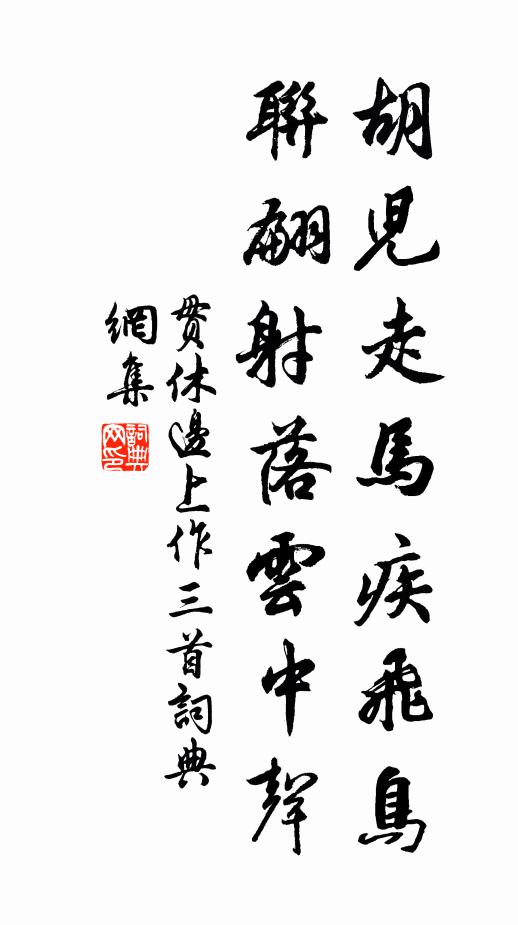 胡兒走馬疾飛鳥
聯翩射落雲中聲
貫休邊上作三首詞典
網集
詞典網印